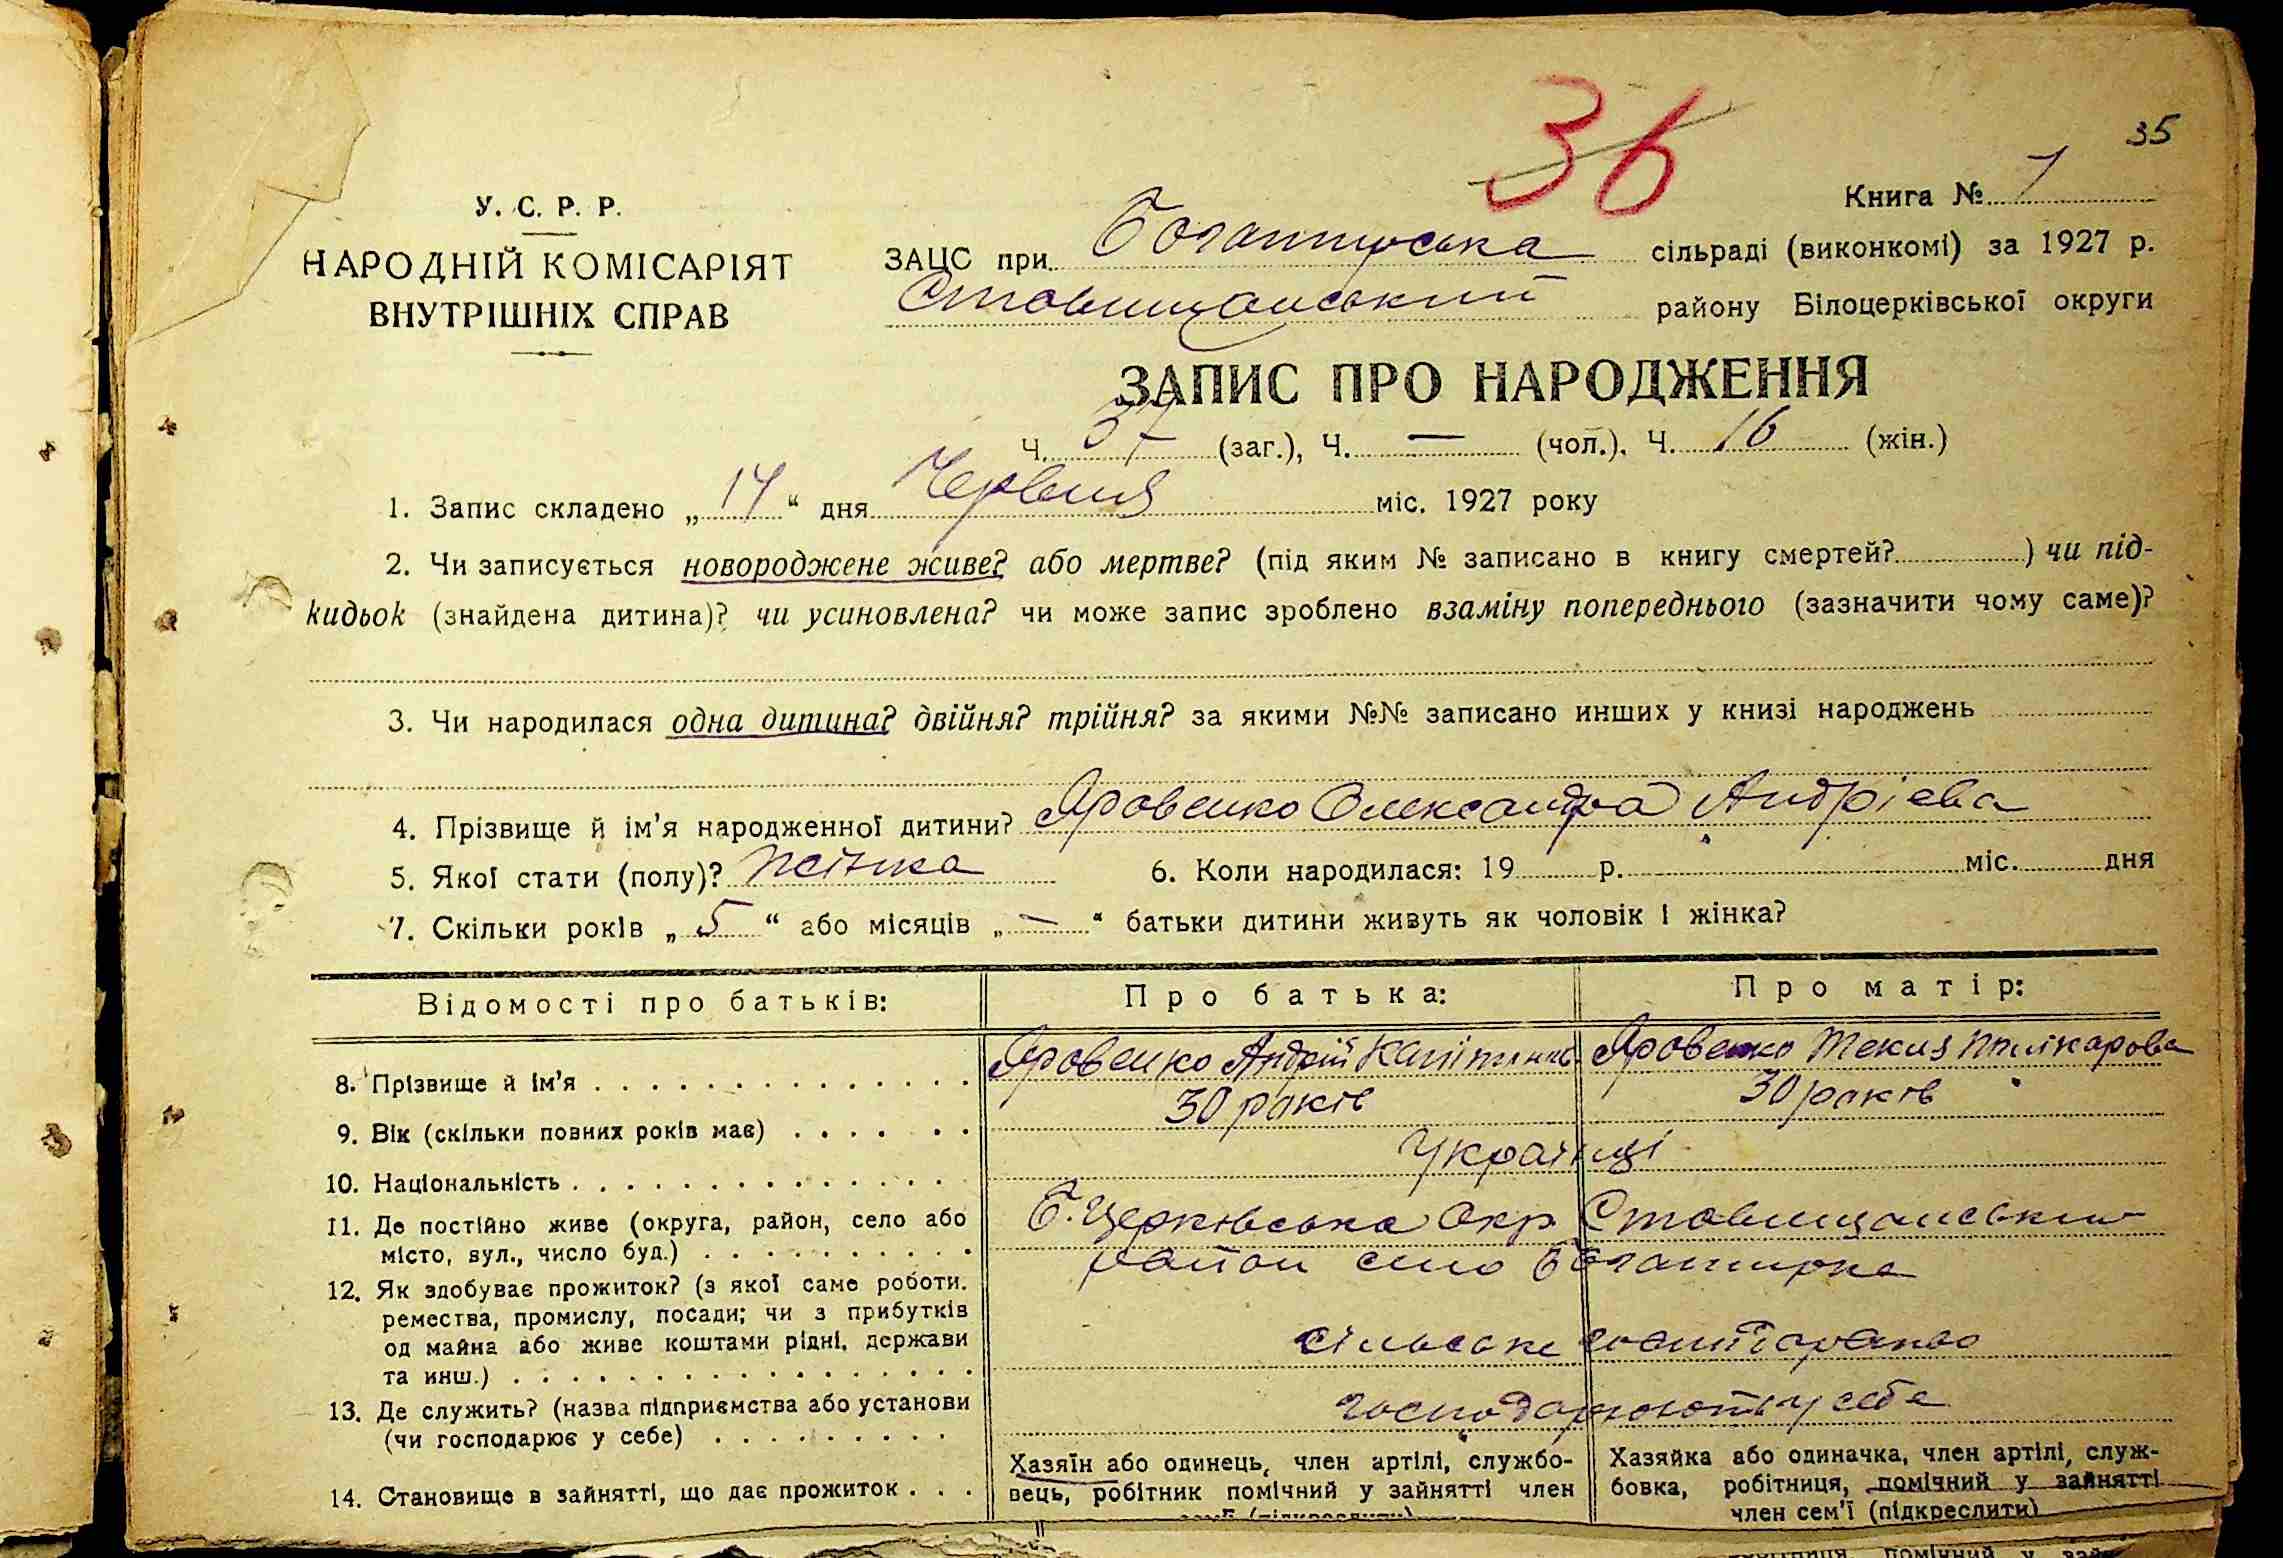 36
35
У. С. Р. Р.
НАРОДНІЙ КОМІСАРІЯТ
ВНУТРІШНІХ СПРАВ
Книга № 1
ЗАЦС при Богатирська сільраді (виконкомі) за 1927 р.
Ставищанський району Білоцерківської округи
ЗАПИС ПРО НАРОДЖЕННЯ
Ч. 37 (заг.), Ч. — (чол.), Ч. 16 (жін.)
1. Запис складено „ 14 “ дня Червня міс. 1927 року
2. Чи записується новороджене живе? або мертве? (під яким № записано в книгу смертей? ) чи під-
кидьок (знайдена дитина)? чи усиновлена? чи може запис зроблено взаміну попереднього (зазначити чому саме)?
3. Чи народилася одна дитина? двійня? трійня? за якими №№ записано инших у книзі народжень
4. Прізвище й ім’я народженної дитини? Яровенко Олександра Андрієва
5. Якої стати (полу)? жінка 6. Коли народилася: 19 р. міс. дня
7. Скільки років „ 5 “ або місяців „ — “ батьки дитини живуть як чоловік і жінка?
Відомості про батьків: Про батька: Про матір:
8. Прізвище й ім’я . . . . . . . . . . . . . . Яровенко Андрій Яровенко Текля
9. Вік (скільки повних років має) . . . . . . 30 років 30 років
10. Національність . . . . . . . . . . . . . . Українці
11. Де постійно живе (округа, район, село або
місто, вул., число буд.) . . . . . . . . . .
Б. Церківська Окр Ставищанський
район село Богатирка
12. Як здобуває прожиток? (з якої саме роботи.
ремества, промислу, посади; чи з прибутків
од майна або живе коштами рідні, держави
та инш.) . . . . . . . . . . . . . . . . .
сільське
13. Де служить? (назва підприємства або установи
(чи господарює у себе) . . . . . . . . .
господарюють у себе
14. Становище в зайнятті, що дає прожиток . . .
Хазяїн або одинець, член артілі, службо-
вець, робітник помічний у зайнятті член
Хазяйка або одиначка, член артілі, служ-
бовка, робітниця, помічний у зайнятті
член сем’ї (підкреслити)